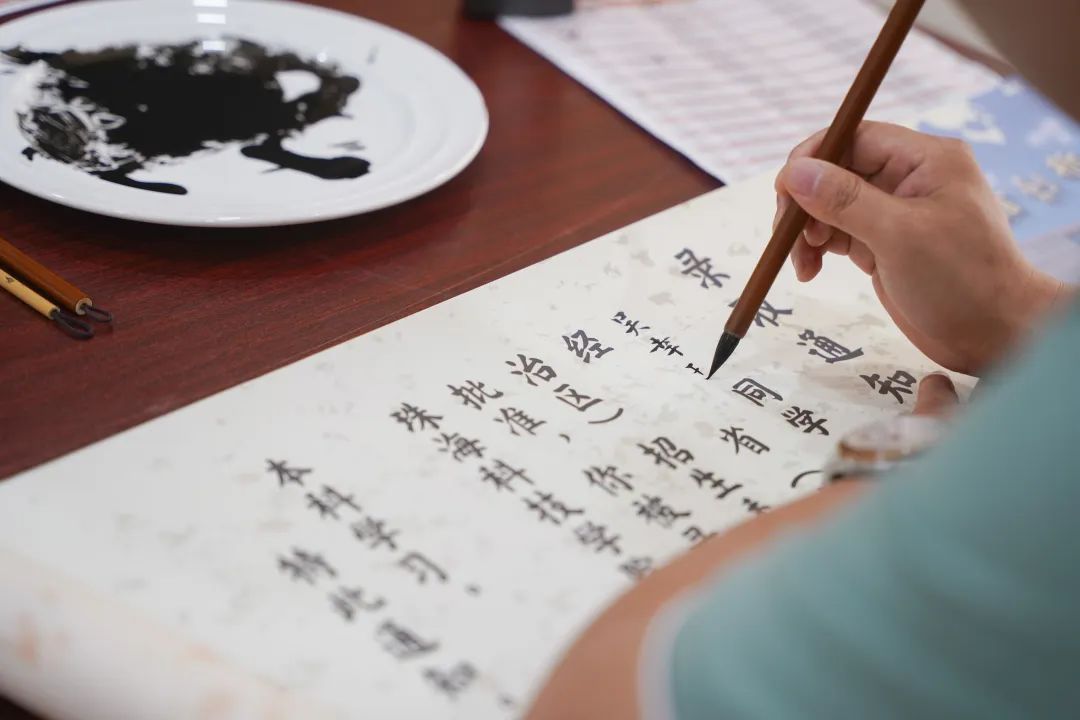 录取通知
吴 同学
经 省（
治区）招生考
批准，你被录
珠海科技学院
本科学习。
特此通知。